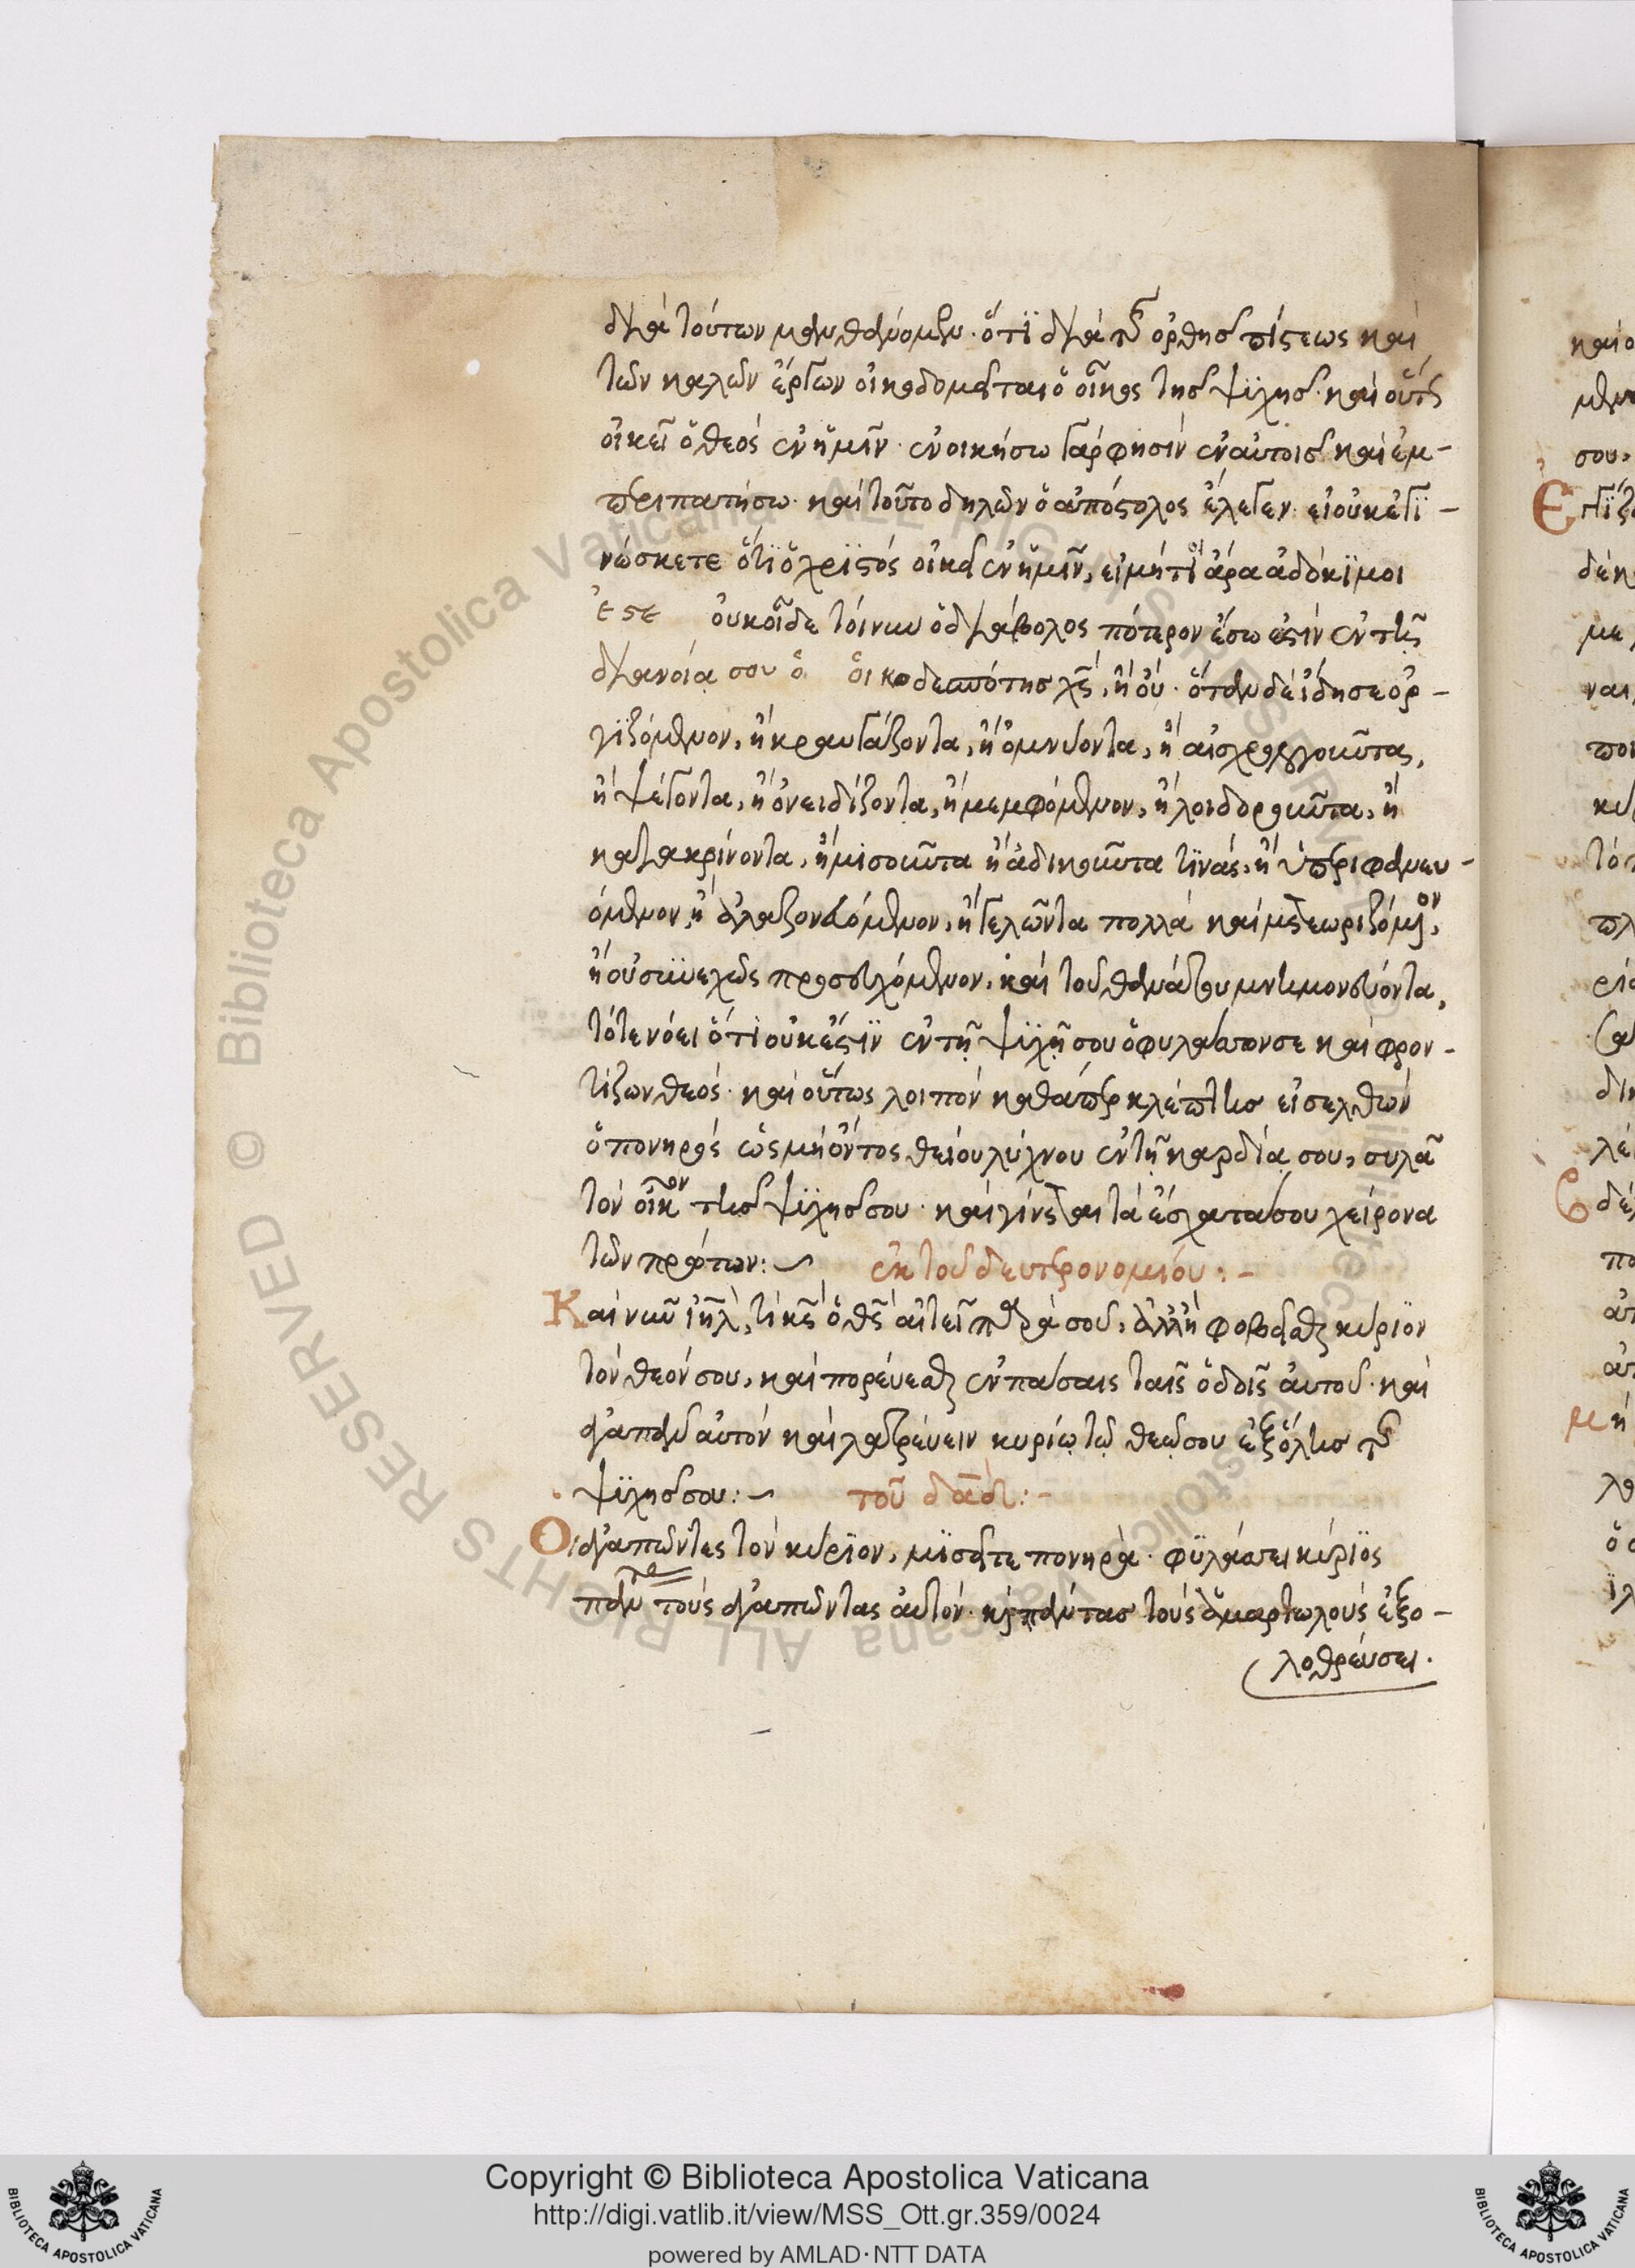 διὰ τούτων μανθάνομεν· ὅτι διὰ τῆς ὀρθῆς πίστεως καὶ
τῶν καλῶν ἔργων οἰκοδομεῖται ὁ οἶκος τῆς ψυχῆς· καὶ οὕτως
οἰκεῖ ὁ θεός ἐν ἡμῖν· ἐνοικήσω γάρ φησιν ἐν αὐτοῖς καὶ ἐμ-
περιπατήσω· καὶ τοῦτο δηλῶν ὁ ἀπόστολος ἔλεγεν· εἰ οὐκ ἐγϊ-
νώσκετε ὅτι ὁ χριστός οἰκεῖ ἐν ἡμῖν, εἰ μή τι ἄρα ἀδόκιμοι
ἐστε οὐκ οἶδε τοίνυν ὁ διάβολος πότερον ἔσω ἐστὶν ἐν τῇ
διανοίᾳ σου ὁ οἰκοδεσπότης χς, ἢ οὔ· ὅταν δὲ ἴδῃ σε ὀρ-
γιζόμενον, ἢ κραυγάζοντα, ἢ ὀμνύοντα, ἢ αἰσχρολογοῦντα,
ἢ ψέγοντα, ἢ ὀνειδίζοντα, ἢ μεμφόμενον, ἢ λοιδοροῦντα, ἢ
κατακρίνοντα, ἢ μισοῦντα ἢ ἀδικοῦντα τινάς, ἢ ὑπεριφανευ-
όμενον, ἢ ἀλαζονευόμενον, ἢ γελῶντα πολλά καὶ μετεωριζόμενον,
ἢ οὐ συνεχῶς προσευχόμενον, καὶ τοῦ θανάτου μνημονεύοντα,
τότε νόει ὅτι οὐκ ἔστιν ἐν τῇ ψυχῇ σου ὁ φυλάττων σε καὶ φρον-
τίζων θεός· καὶ οὕτως λοιπόν καθάπερ κλέπτης εἰσελθών
ὁ πονηρός ὡς μὴ ὄντος θείου λύχνου ἐν τῇ καρδίᾳ σου, συλᾶ
τὸν οἶκον τῆς ψυχῆς σου· καὶ γίνεται τὰ ἔσχατά σου χείρονα
τῶν πρώτων:~ ἐκ τοῦ δευτερονομίου:-
Καὶ νῦν ιηλ, τί κς ὁ θς αἰτεῖ παρὰ σοῦ, ἀλλ' ἢ φοβεῖσθαι κύριον
τὸν θεόν σου, καὶ πορεύεσθαι ἐν πάσαις ταῖς ὁδοῖς αὐτοῦ· καὶ
ἀγαπᾶν αὐτόν καὶ λατρεύειν κυρίῳ τῷ θεῷ σου ἐξ ὅλης τῆς
ψυχῆς σου:~ τοῦ δαδ:-
Οἱ ἀγαπῶντες τὸν κύριον, μισεῖτε πονηρά· φυλάσσει κύριος
πάντας τοὺς ἀγαπῶντας αὐτόν· καὶ πάντας τοὺς ἁμαρτωλούς ἐξο-
λοθρεύσει.
καὶ ο
σου,
Ἐπι
δὲ κ
με
ναι
ποι
Copyright © Biblioteca Apostolica Vaticana
http://digi.vatlib.it/view/MSS_Ott.gr.359/0024
powered by AMLAD·NTT DATA
BIBLIOTECA APOSTOLICA VATICANA
BIBLIOTECA APOSTOLICA VATICANA
© Biblioteca Apostolica Vaticana ALL RIGHTS RESERVED